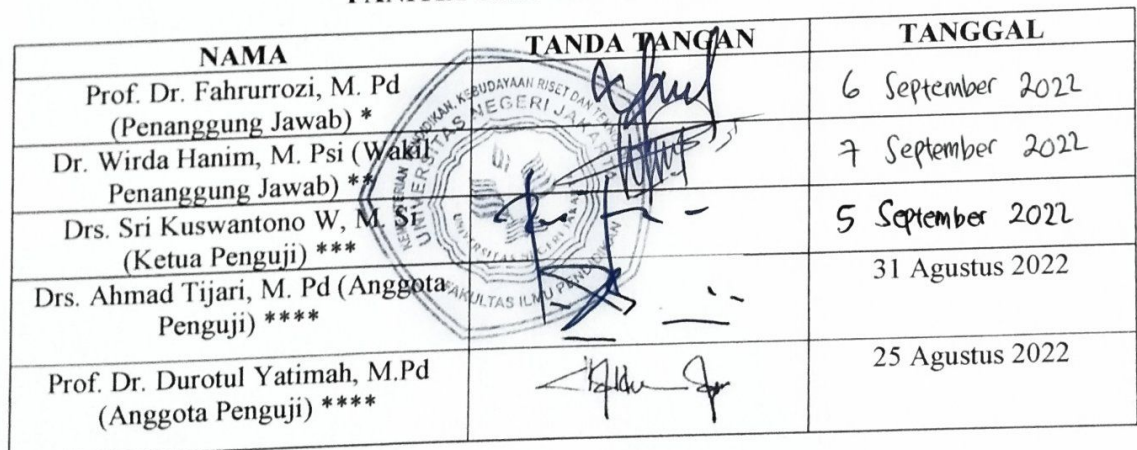 NAMA TANDA TANGAN TANGGAL
Prof. Dr. Fahrurrozi, M. Pd
(Penanggung Jawab) *
6 September 2022
Dr. Wirda Hanim, M. Psi (Wakil
Penanggung Jawab) **
7 September 2022
Drs. Sri Kuswantono W, M. Si
(Ketua Penguji) ***
5 September 2022
Drs. Ahmad Tijari, M. Pd (Anggota
Penguji) ****
31 Agustus 2022
Prof. Dr. Durotul Yatimah, M.Pd
(Anggota Penguji) ****
25 Agustus 2022
KEBUDAYAAN RISET DAN
UNIVERSITAS NEGERI JAKARTA
FAKULTAS ILMU PENDIDIKAN